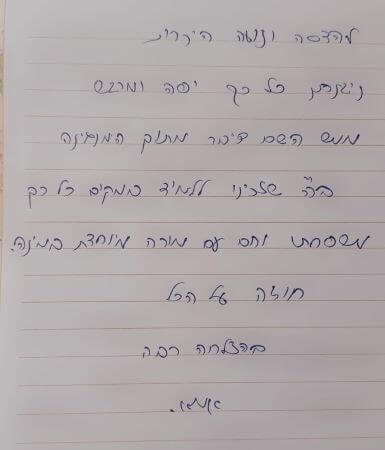 להדסה ונועה היקרות
ניגנתן כל כך יפה ומרגש
ממש השם דיבר מתוך המנגינה
ב"ה ללמוד במקום כל כך
משפחתי וחם עם מורה מיוחדת במינה.
תודה על הכל
בהצלחה רבה